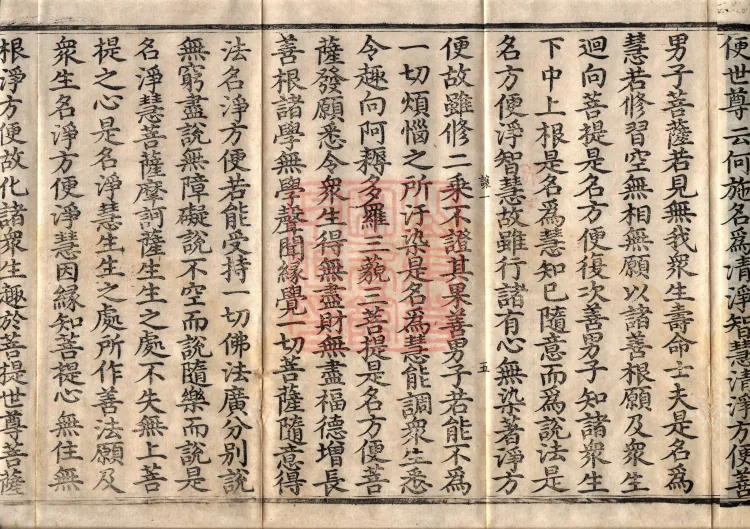 便世尊云何施名為清淨智慧清淨方便善
男子菩薩若見無我衆生壽命士夫是名為
慧若修習空無相無願以諸善根願及衆生
迴向菩提是名方便復次善男子知諸衆生
下中上根是名為慧知已隨意而為說法是
名方便淨智慧故雖行諸有心無染著淨方
五
便故雖修二乘不證其果善男子若能不為
一切煩惱之所汙染是名為慧能調衆生悉
令趣向阿耨多羅三藐三菩提是名方便菩
薩發願悉令衆生得無盡財無盡福德增長
善根諸學無學聲聞緣覺一切菩薩隨意得
法名淨方便若能受持一切佛法廣分別說
無窮盡說無障礙說不空而說隨樂而說是
名淨慧菩薩摩訶薩生生之處不失無上菩
提之心是名淨慧生生之處所作善法願及
衆生名淨方便淨慧因緣知菩提心無住無
根淨方便故化諸衆生趣於菩提世尊菩薩